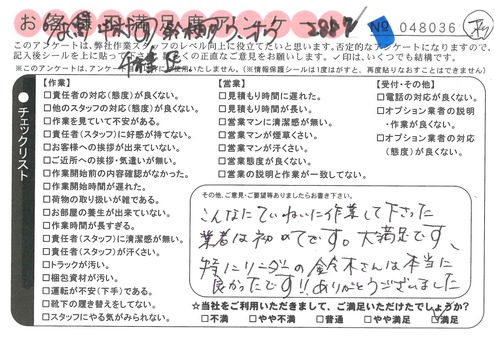 お客様満足度アンケート
№ 048036
このアンケートは、弊社作業スタッフのレベル向上に役立てたいと思います。否定的なアンケートになりますので、
記入後シールを上に貼っ
くの正直なご意見をお願いします。✓印は、いくつでも結構です。
※このアンケートは、アンケ
使用いたしません。(※情報保護シールは1度はがすと、再度貼りなおすことはできません)
チェックリスト
【作業】
□責任者の対応(態度)が良くない。
□他のスタッフの対応(態度)が良くない。
□作業を見ていて不安がある。
□責任者(スタッフ)に好感が持てない。
□お客様への挨拶が出来ていない。
□ご近所への挨拶・気遣いが無い。
□作業開始前の内容確認がなかった。
□作業開始時間が遅れた。
□荷物の取り扱いが雑である。
□お部屋の養生が出来ていない。
□作業時間が長すぎる。
□責任者(スタッフ)に清潔感が無い。
□責任者(スタッフ)が汗くさい。
□トラックが汚い。
□梱包資材が汚い。
□運転が不安(下手)である。
□靴下の履き替えをしてない。
□スタッフにやる気がみられない。
【営業】
□見積もり時間に遅れた。
□見積もり時間が長い。
□営業マンに清潔感が無い。
□営業マンが煙草くさい。
□営業マンが汗くさい。
□営業態度が良くない。
□営業の説明と作業が一致してない。
【受付・その他】
□電話の対応が良くない。
□オプション業者の説明
・作業が良くない。
□オプション業者の対応
(態度)が良くない。
その他、ご意見・ご要望等ありましたらお書き下さい。
こんなにていねいに作業して下さった
業者は初めてです。大満足です、
特にリーダーの鈴木さんは本当に
良かったです!!ありがとうございました
☆当社をご利用いただきまして、ご満足いただけたでしょうか?
□不満 □やや不満 □普通 □やや満足 ☑満足